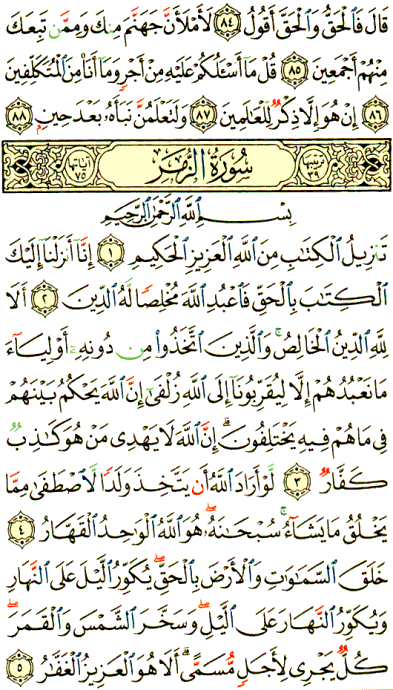 قَالَ فَٱلْحَقُّ وَٱلْحَقَّ أَقُولُ ٨٤ لَأَمْلَأَنَّ جَهَنَّمَ مِنكَ وَمِمَّن تَبِعَكَ
مِنْهُمْ أَجْمَعِينَ ٨٥ قُلْ مَآ أَسْـَٔلُكُمْ عَلَيْهِ مِنْ أَجْرٍ وَمَآ أَنَا۠ مِنَ ٱلْمُتَكَلِّفِينَ
٨٦ إِنْ هُوَ إِلَّا ذِكْرٌ لِّلْعَٰلَمِينَ ٨٧ وَلَتَعْلَمُنَّ نَبَأَهُۥ بَعْدَ حِينٍۭ ٨٨
ترتيبها ٣٩ سُورَةُ الزُّمَر آياتها ٧٥
بِسْمِ ٱللَّهِ ٱلرَّحْمَٰنِ ٱلرَّحِيمِ
تَنزِيلُ ٱلْكِتَٰبِ مِنَ ٱللَّهِ ٱلْعَزِيزِ ٱلْحَكِيمِ ١ إِنَّآ أَنزَلْنَآ إِلَيْكَ
ٱلْكِتَٰبَ بِٱلْحَقِّ فَٱعْبُدِ ٱللَّهَ مُخْلِصًا لَّهُ ٱلدِّينَ ٢ أَلَا
لِلَّهِ ٱلدِّينُ ٱلْخَالِصُ ۚ وَٱلَّذِينَ ٱتَّخَذُوا۟ مِن دُونِهِۦٓ أَوْلِيَآءَ
مَا نَعْبُدُهُمْ إِلَّا لِيُقَرِّبُونَآ إِلَى ٱللَّهِ زُلْفَىٰٓ إِنَّ ٱللَّهَ يَحْكُمُ بَيْنَهُمْ
فِى مَا هُمْ فِيهِ يَخْتَلِفُونَ ۗ إِنَّ ٱللَّهَ لَا يَهْدِى مَنْ هُوَ كَٰذِبٌ
كَفَّارٌ ٣ لَّوْ أَرَادَ ٱللَّهُ أَن يَتَّخِذَ وَلَدًا لَّٱصْطَفَىٰ مِمَّا
يَخْلُقُ مَا يَشَآءُ ۚ سُبْحَٰنَهُۥ ۖ هُوَ ٱللَّهُ ٱلْوَٰحِدُ ٱلْقَهَّارُ ٤
خَلَقَ ٱلسَّمَٰوَٰتِ وَٱلْأَرْضَ بِٱلْحَقِّ ۖ يُكَوِّرُ ٱلَّيْلَ عَلَى ٱلنَّهَارِ
وَيُكَوِّرُ ٱلنَّهَارَ عَلَى ٱلَّيْلِ ۖ وَسَخَّرَ ٱلشَّمْسَ وَٱلْقَمَرَ ۖ
كُلٌّ يَجْرِى لِأَجَلٍ مُّسَمًّى ۗ أَلَا هُوَ ٱلْعَزِيزُ ٱلْغَفَّٰرُ ٥